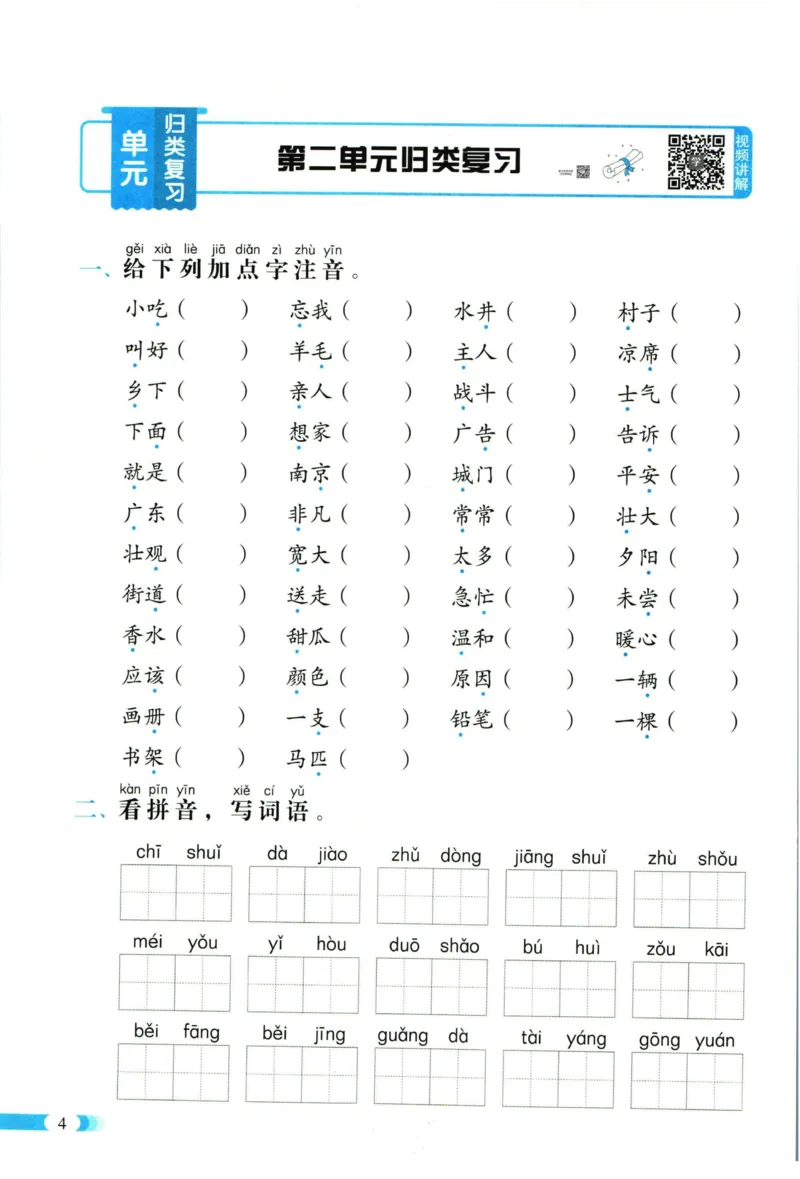 单元
归类复习
第二单元归类复习
视频讲解
gěi xià liè jiā diǎn zì zhù yīn
一、给下列加点字注音。
小吃（　　） 忘我（　　） 水井（　　） 村子（　　）
叫好（　　） 羊毛（　　） 主人（　　） 凉席（　　）
乡下（　　） 亲人（　　） 战斗（　　） 士气（　　）
下面（　　） 想家（　　） 广告（　　） 告诉（　　）
就是（　　） 南京（　　） 城门（　　） 平安（　　）
广东（　　） 非凡（　　） 常常（　　） 壮大（　　）
壮观（　　） 宽大（　　） 太多（　　） 夕阳（　　）
街道（　　） 送走（　　） 急忙（　　） 未尝（　　）
香水（　　） 甜瓜（　　） 温和（　　） 暖心（　　）
应该（　　） 颜色（　　） 原因（　　） 一辆（　　）
画册（　　） 一支（　　） 铅笔（　　） 一棵（　　）
书架（　　） 马匹（　　）
kàn pīn yīn xiě cí yǔ
二、看拼音，写词语。
chī shuǐ dà jiào zhǔ dòng jiāng shuǐ zhù shǒu
méi yǒu yǐ hòu duō shǎo bú huì zǒu kāi
běi fāng běi jīng guǎng dà tài yáng gōng yuán
4